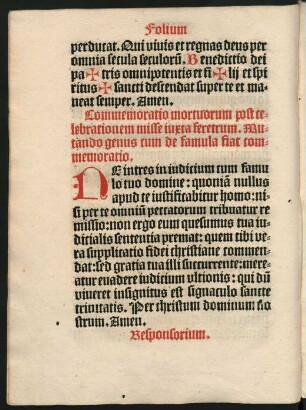 Folium
perducat. Qui viuis et regnas deus per
omnia secula seculorū. Benedictio dei
pa ✠ tris omnipotentis et fi ✠ lij et spi
ritus ✠ sancti descendat super te et ma
neat semper. Amen.
Commemoratio mortuorum post ce
lebrationem misse iuxta feretrum. Mu
tando genus cum de famula fiat com
memoratio.
NE intres in iudicium cum famu
lo tuo domine: quoniā nullus
apud te iustificabitur homo: ni
si per te omniū peccatorum tribuatur re
missio: non ergo eum quesumus tua iu
dicialis sententia premat: quem tibi ve
ra supplicatio fidei christiane commen
dat: sed gratia tua illi succurrente: mere
atur euadere iudicium vltionis: qui dū
viueret insignitus est signaculo sancte
trinitatis. Per christum dominum no
strum. Amen.
Responsorium.